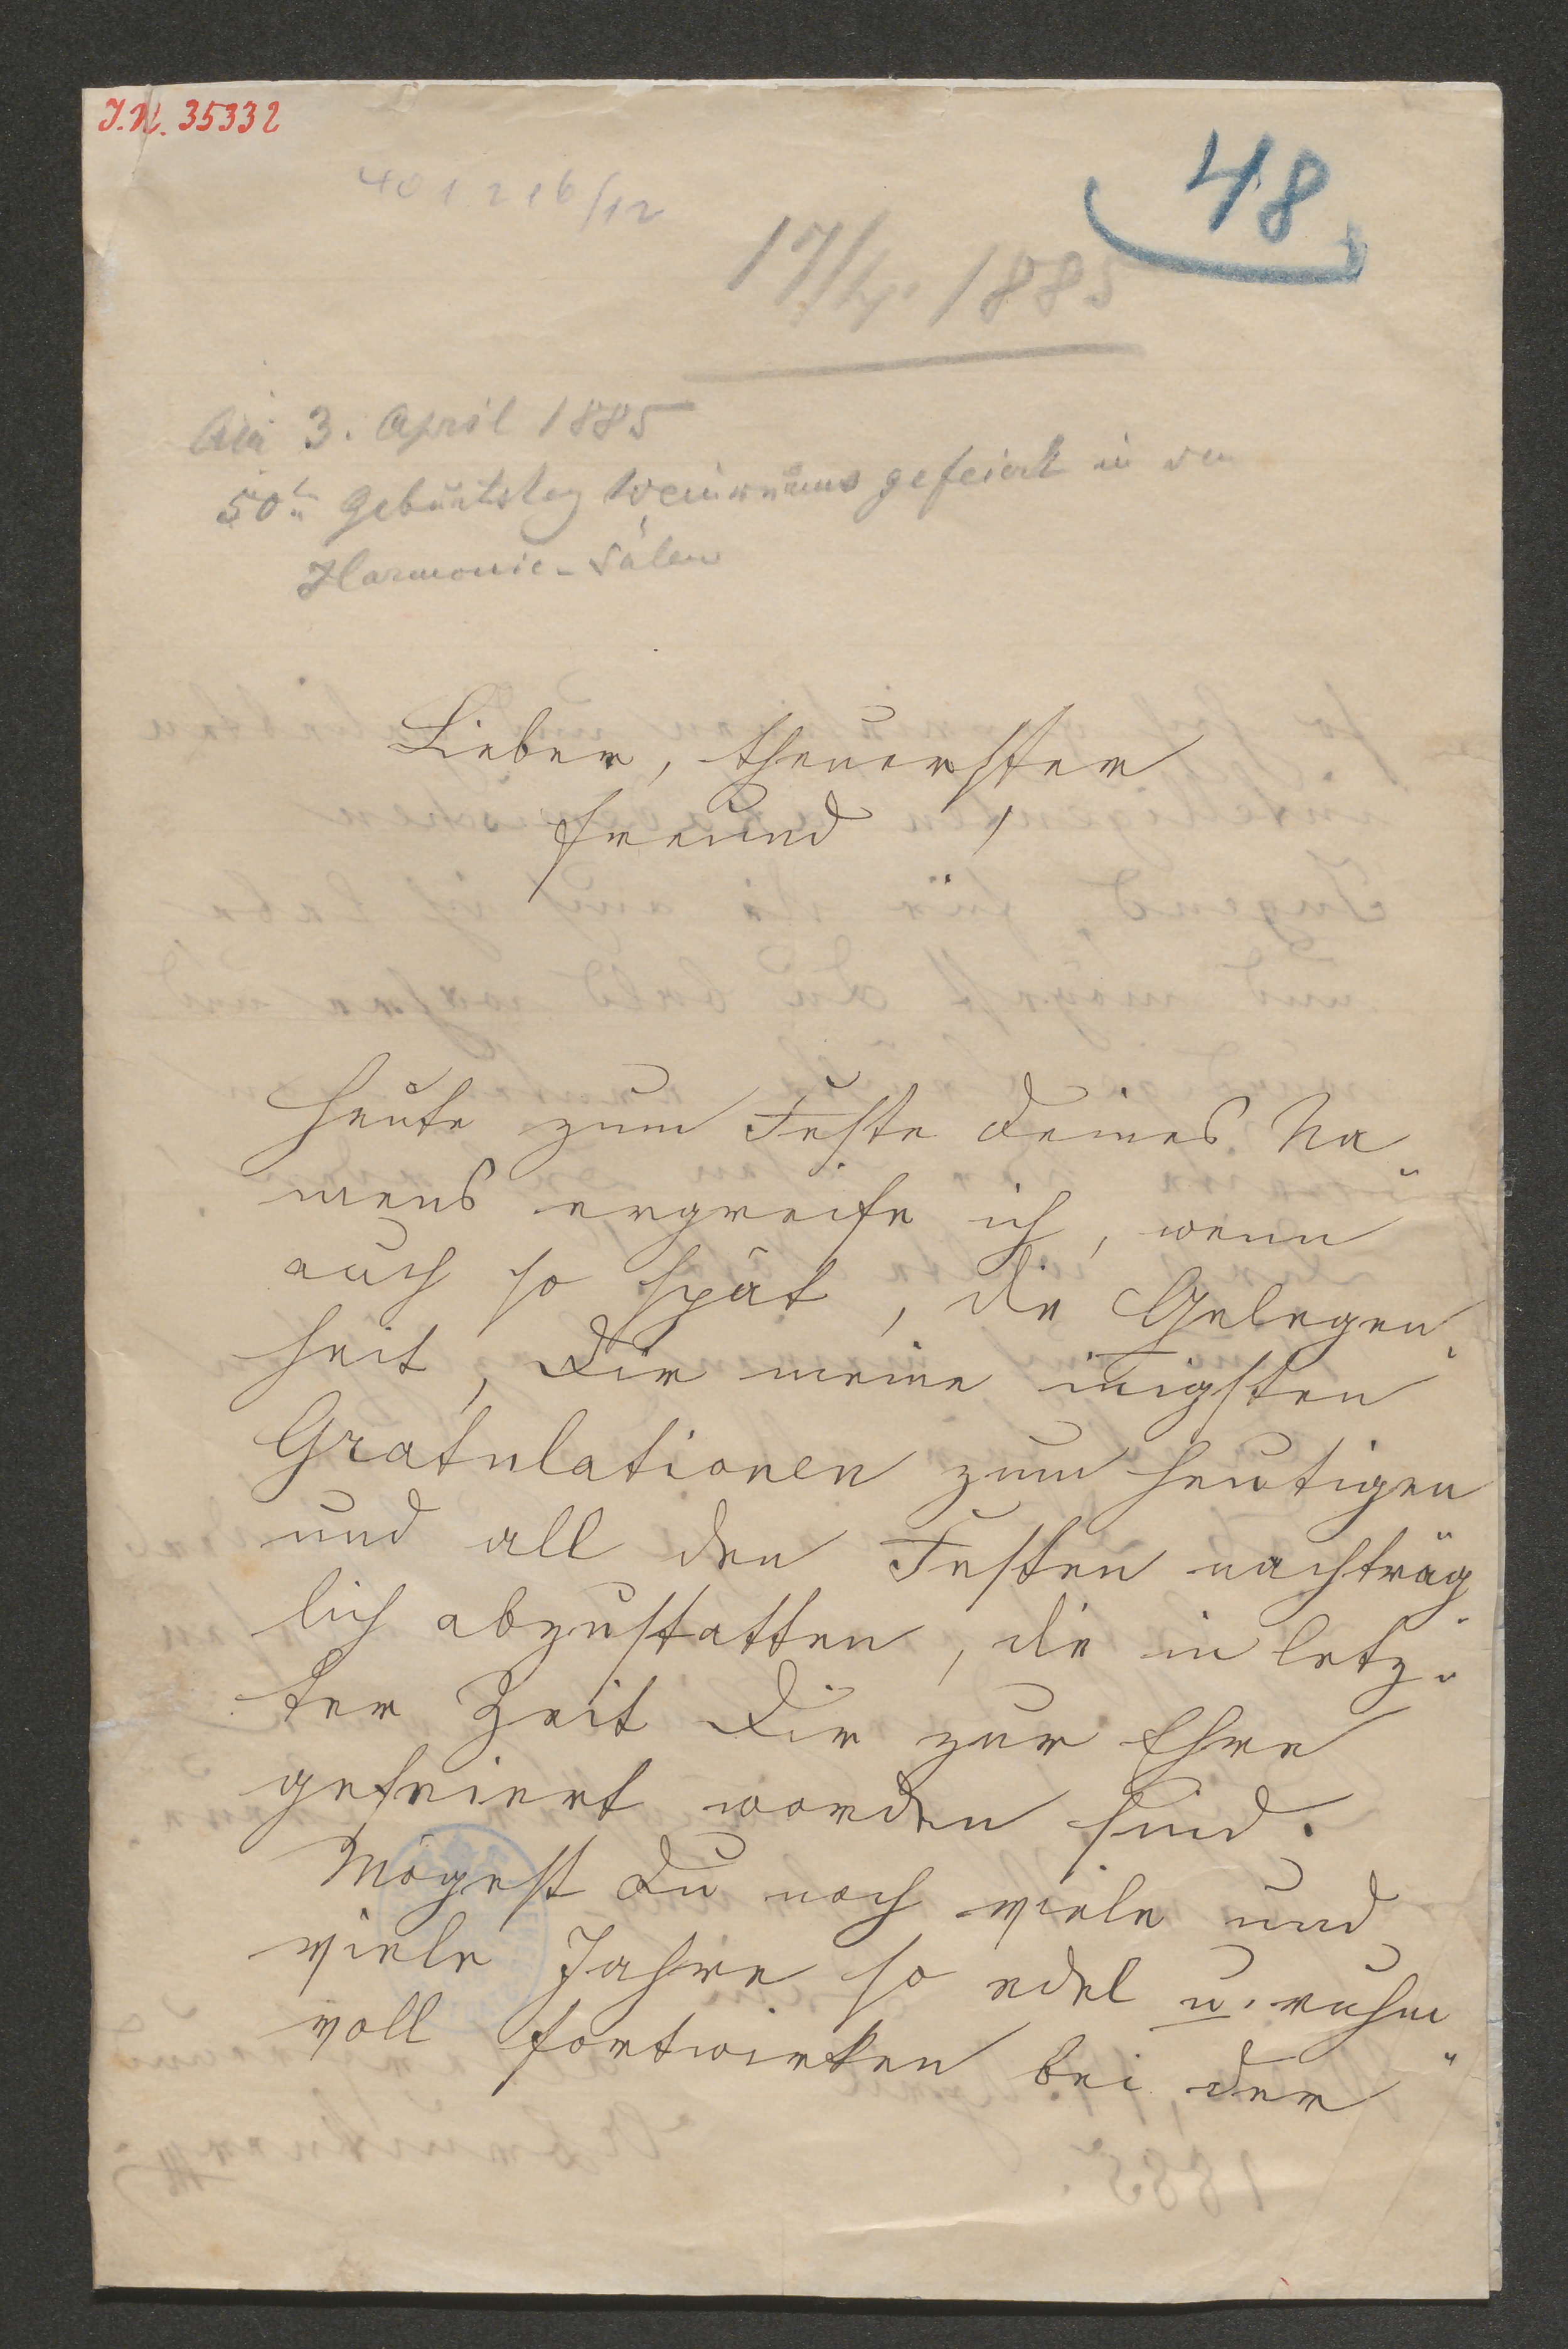 J.N. 35332
48
401216/12
17/4. 1885
Am 3. April 1885
50ter Geburtstag Weinwurms gefeiert in den
Harmonie-Sälen
Lieber, theuerster
Freund!
Heute zum Feste Deines Na„
mens ergreife ich, wenn
auch so spät, die Gelegen„
heit, Dir meine iñigsten
Gratulationen zum heutigen
und all den Festen nachträg„
lich abzustatten, die in letz„
ter Zeit Dir zur Ehre
gefeiert worden sind.
Mögest Du noch viele und
viele Jahre so edel u. ruhm„
voll fortwirken bei der